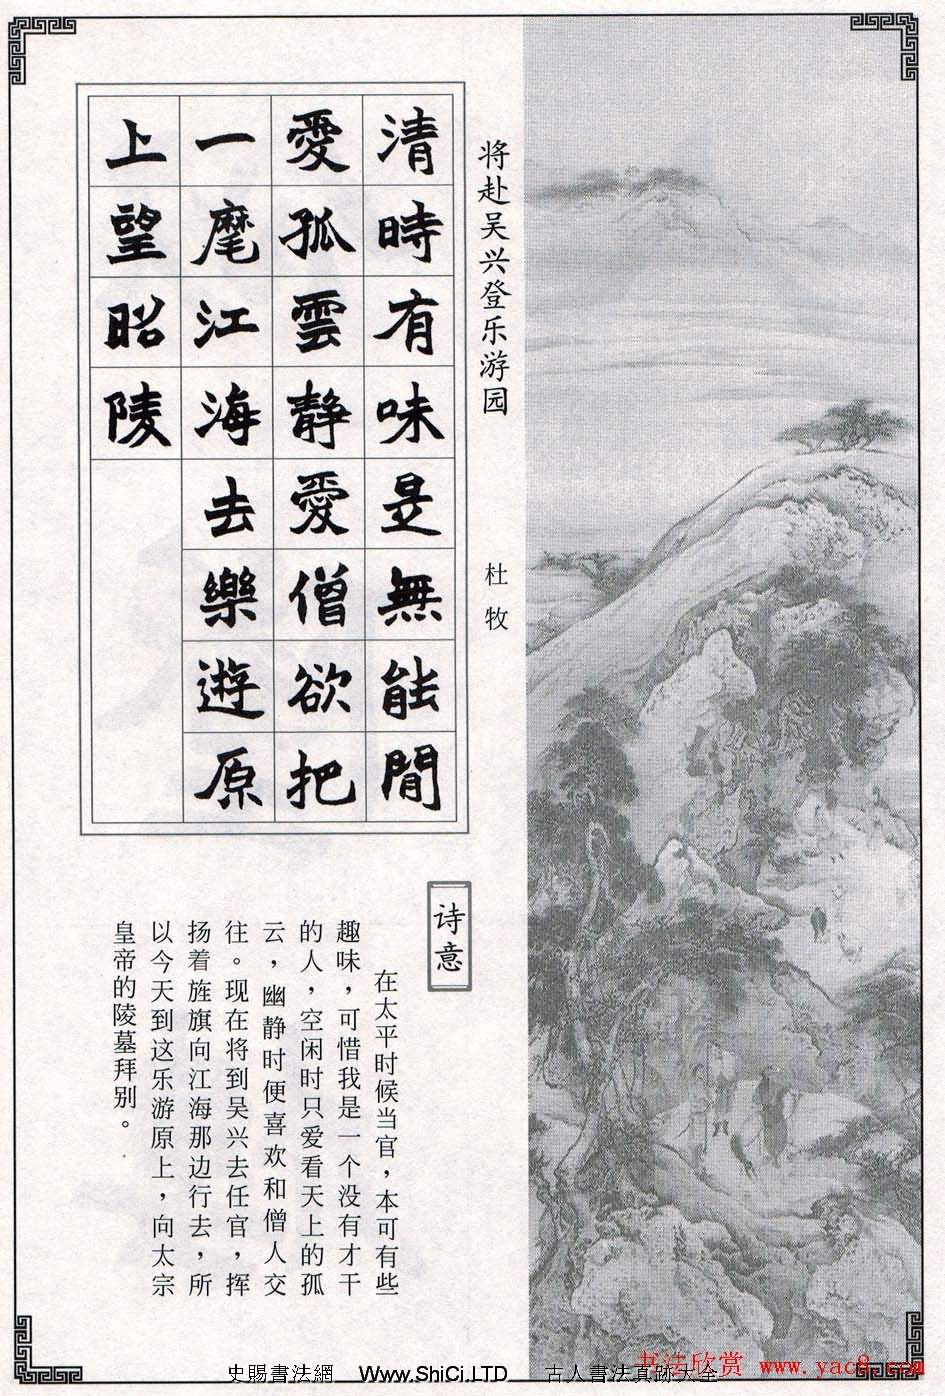 将赴吴兴登乐游园
杜牧
清時有味是無能閒
愛孤雲静愛僧欲把
一麾江海去樂遊原
上望昭陵
诗意
在太平时候当官，本可有些
趣味，可惜我是一个没有才干
的人，空闲时只爱看天上的孤
云，幽静时便喜欢和僧人交
往。现在将到吴兴去任官，挥
扬着旌旗向江海那边行去，所
以今天到这乐游原上，向太宗
皇帝的陵墓拜别。
史賜書法網 Www.ShiCi.LTD 古人書法真跡大全
书法欣赏 www.yac8.com